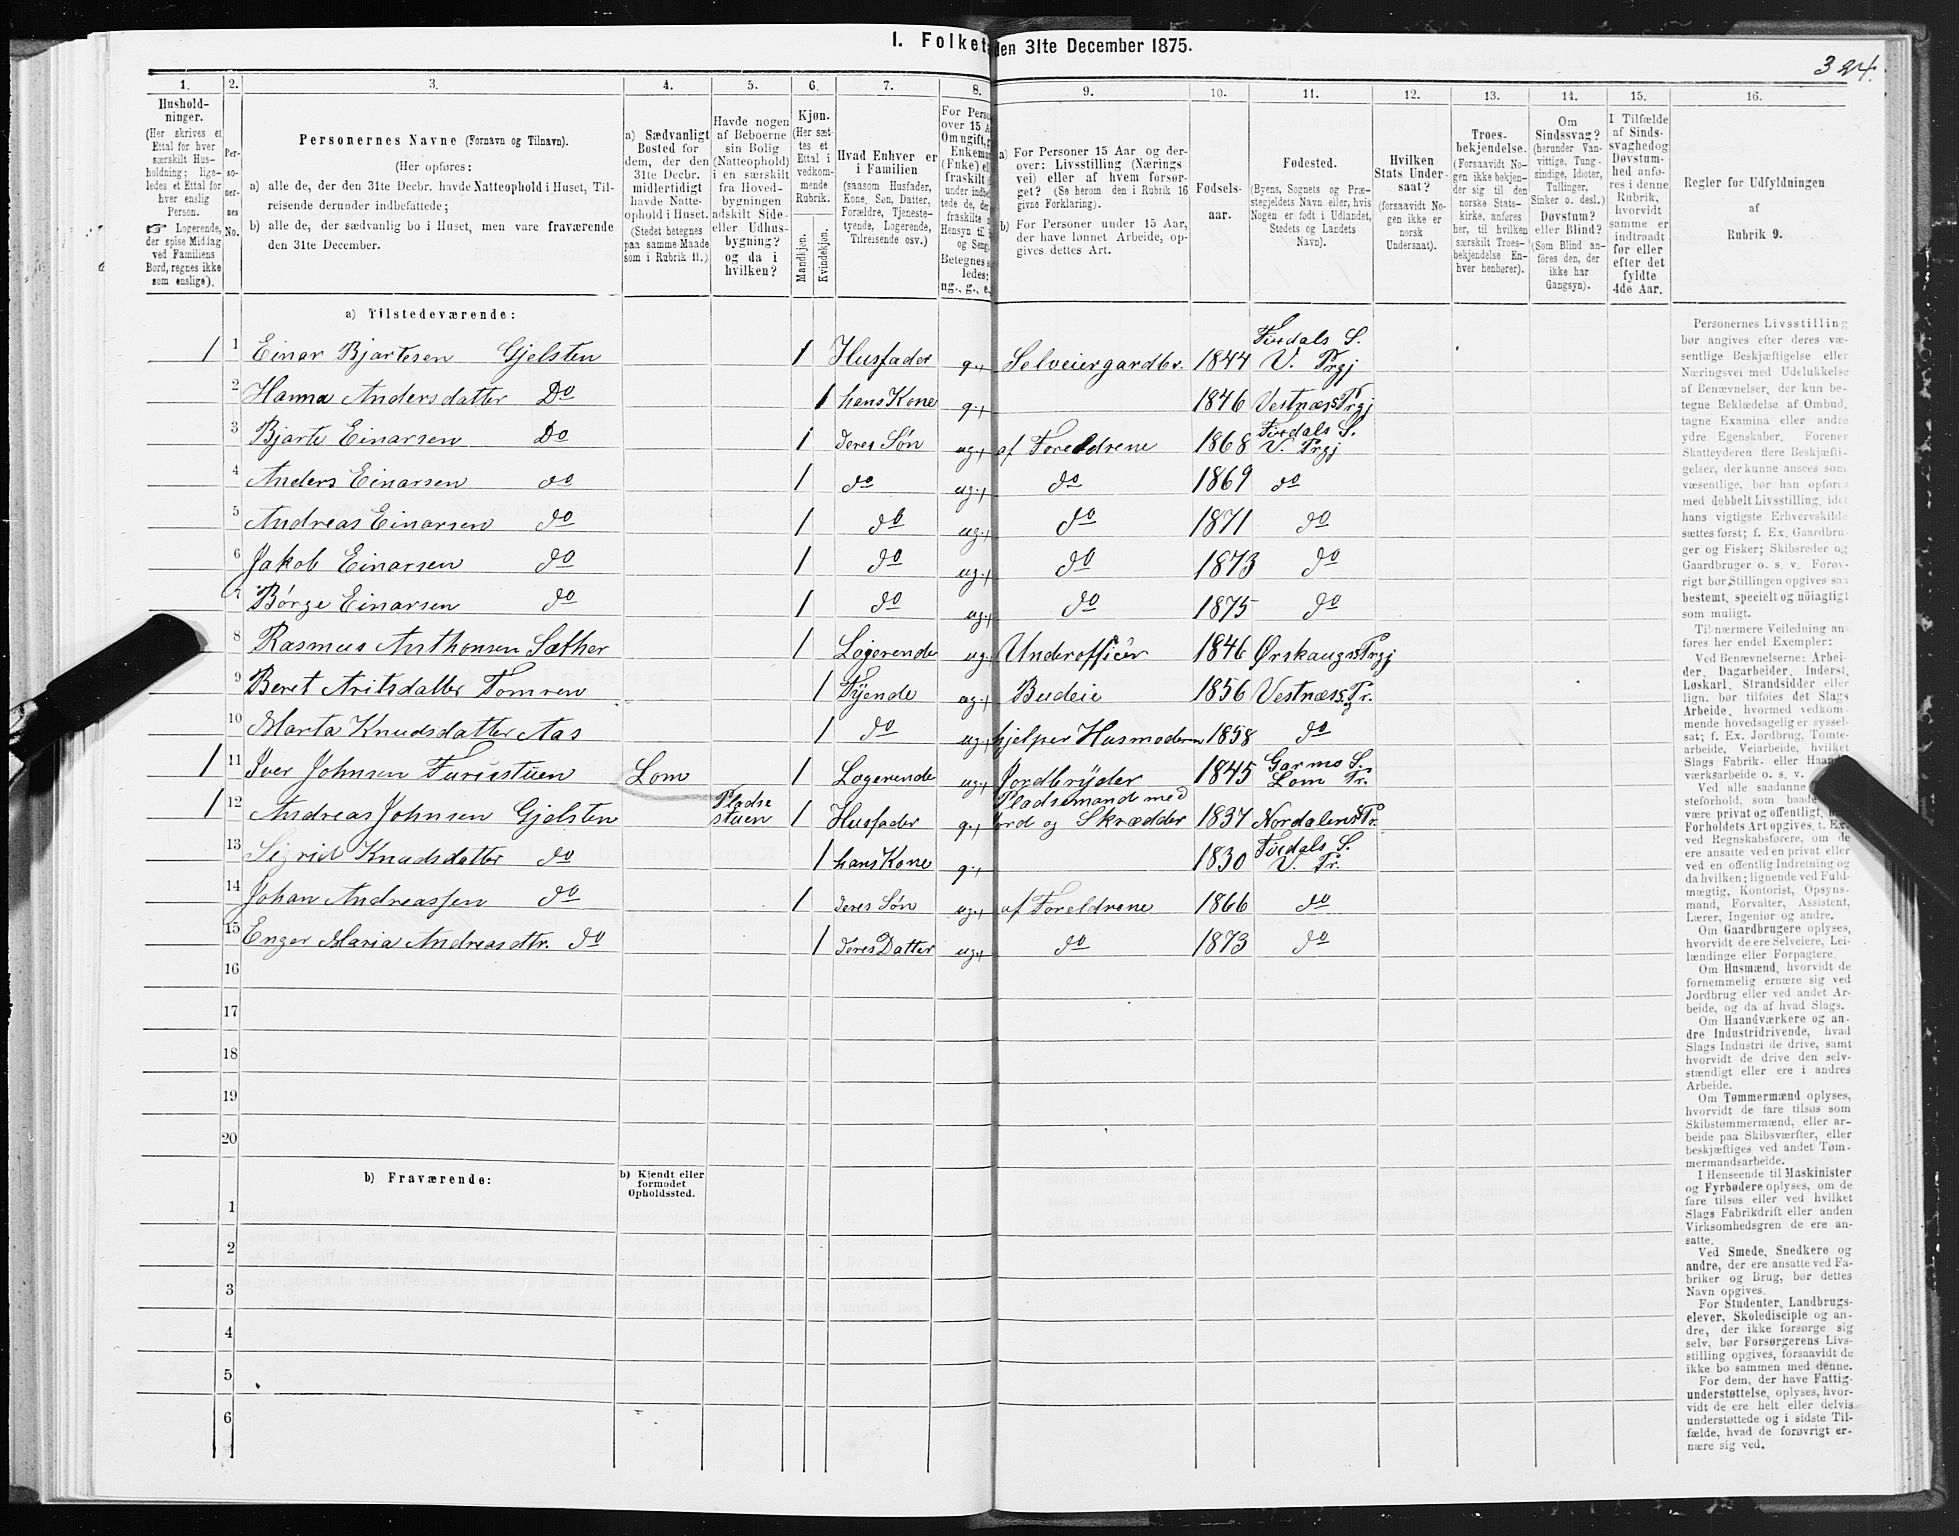 1. Folket den 31te December 1875.
324.
1. 2. 3. 4. 5. 6. 7. 8. 9. 10. 11. 12. 13. 14. 15. 16.
Hushold-
ninger.
(Her skrives et
Ettal for hver
særskilt Hus-
holdning; lige-
ledes et Ettal for
hver enslig
Person.
☞ Logerende,
der spise Middag
ved Familiens
Bord, regnes ikke
som enslige).
Per-
so-
ner-
nes
No.
Personernes Navne (Fornavn og Tilnavn).
(Her opføres:
a) alle de, der den 31te Decbr. havde Natteophold i Huset, Til-
reisende derunder indbefattede;
b) alle de, der sædvanlig bo i Huset, men vare fraværende
den 31te December.
a) Sædvanligt
Bosted for
dem, der den
31te Decbr.
midlertidigt
havde Natte-
ophold i Huset.
(Stedet betegnes
paa samme Maade
som i Rubrik 11.)
Havde nogen
af Beboerne
sin Bolig
(Natteophold)
i en særskilt
fra Hoved-
bygningen
adskilt Side-
eller Udhus-
bygning?
og da i
hvilken?
Kjøn.
(Her sæt-
tes et
Ettal i
vedkom-
mende
Rubrik.
Mandkjøn.
Kvindekjøn.
Hvad Enhver er
i Familien
(saasom Husfader,
Kone, Søn, Datter,
Forældre, Tjeneste-
tyende, Logerende,
Tilreisende osv.)
For Perso
over 15 A
Om ugift, g
Enkeman
(Enke) el
fraskilt
under indb
tede de, de
fraskilte
Hensyn til
og Seng
Betegnes
ledes:
ug., g., e.,
a) For Personer 15 Aar og der-
over: Livsstilling (Nærings
vei) eller af hvem forsør-
get? (Se herom den i Rubrik 16
givne Forklaring).
b) For Personer under 15 Aar,
der have lønnet Arbeide, op-
gives dettes Art.
Fødsels-
aar.
Fødested.
(Byens, Sognets og Præ-
stegjeldets Navn eller, hvis
Nogen er født i Udlandet,
Stedets og Landets
Navn).
Hvilken
Stats Under-
saat?
(forsaavidt No-
gen ikke er
norsk
Undersaat).
Troes-
bekjendelse.
(Forsaavidt No-
gen ikke bekjen-
der sig til den
norske Stats-
kirke, anføres
her, til hvilken
særskilt Troes-
bekjendelse En-
hver henhører).
Om
Sindssvag?
(herunder Van-
vittige, Tung-
sindige, Idioter,
Tullinger,
Sinker o. desl.)
Døvstum?
eller Blind?
(Som Blind an-
føres den, der
ikke har
Gangsyn).
I Tilfælde
af Sinds-
svaghed og
Døvstum-
hed anfø-
res i denne
Rubrik,
hvorvidt
samme er
indtraadt
før eller
efter det
fyldte
4de Aar.
Regler for Udfyldningen
af
Rubrik 9.
a) Tilstedeværende:
1 1 Einar Bjartesen Gjelsten 1 Husfader g., Selveiergardbr. 1844 Fixdals S. V. Prgj
2 Hanna Andersdatter Do 1 hans Kone g., 1846 Vestnæs Prgj
3 Bjarte Einarsen Do 1 deres Søn ug., af Foreldrene 1868 Fixdals S. V. Prgj
4 Anders Einarsen do 1 do ug., do 1869 do
5 Andreas Einarsen do 1 do ug., do 1871 do
6 Jakob Einarsen do 1 do ug., do 1873 do
7 Børge Einarsen do 1 do ug., do 1875 do
8 Rasmus Anthonsen Sæther 1 Logerende ug. Underofficer 1846 Ørskaugs Prgj
9 Beret Aritsdatter Tomren 1 Tyende ug., Budeie 1856 Vestnæs Pr.
10 Marta Knudsdatter Aas 1 do ug., hjelper Husmoderen 1858 do
1 11 Iver Johnsen Furustuen Lom 1 Logerende ug., Jordbryder 1845 Garmo S. Lom Pr.
1 12 Andreas Johnsen Gjelsten Pladse stuen 1 Husfader g., Pladsemand med ord og Skrædder 1837 Nordalens Pr.
13 Sigrid Knudsdatter do 1 hans Kone g., 1830 Fixdals S. V. Pr.
14 Johan Andreassen do 1 deres Søn ug., af Foreldrene 1866 do
15 Enger Maria Andreasdtr. do 1 deres Datter ug., do 1873 do
16
17
18
19
20
b) Fraværende:
b) Kjendt eller
formodet
Opholdssted.
1
2
3
4
5
6
Personernes Livsstilling
bør angives efter deres væ-
sentlige Beskjæftigelse eller
Næringsvei med Udelukkelse
af Benævnelser, der kun be-
tegne Beklædelse af Ombud,
tagne Examina eller andre
ydre Egenskaber. Forener
Skatteyderen flere Beskjæfti-
gelser, der kunne ansees som
væsentlige, bør han opføres
med dobbelt Livsstilling, idet
hans vigtigste Erhvervskilde
sættes først; f. Ex. Gaardbru-
ger og Fisker; Skibsreder og
Gaardbruger o. s. v. Forøv-
rigt bør Stillingen opgives saa
bestemt, specielt og nöiagtigt
som muligt.
Til nærmere Veiledning an-
føres her endel Exempler:
Ved Benævnelserne: Arbei-
der, Dagarbeider, Inderst,
Løskarl, Strandsidder eller
lign. bør tilføies det Slags
Arbeide, hvormed vedkom-
mende hovedsagelig er syssel-
sat; f. Ex. Jordbrug, Tomte-
arbeide, Veiarbeide, hvilket
Slags Fabrik- eller Haand-
værksarbeide o. s. v.
Ved alle saadanne
steforhold, som baade
være privat og offentlig,
Forholdets Art opgives, f. Ex.
ved Regnskabsførere, om de
ere ansatte ved en privat eller
ved en offentlig Indretning og
da hvilken; lignende ved Fuld-
mægtig, Kontorist, Opsyns-
mand, Forvalter, Assistent,
Lærer, Ingeniør og andre.
Om Gaardbrugere oplyses,
hvorvidt de ere Selveiere, Lei-
lændinge eller Forpagtere.
Om Husmænd, hvorvidt de
fornemmelig ernære sig ved
Jordbrug eller ved andet Ar-
beide, og da af hvad Slags.
Om Haandværkere og an-
dre Industridrivende, hvad
Slags Industri de drive, samt
hvorvidt de drive den selv-
stændigt eller ere i andres
Arbeide.
Om Tømmermænd oplyses,
hvorvidt de fare tilsøs som
Skibstømmermænd, eller ar-
beide paa Skibsværfter, eller
beskjæftiges ved andet Tøm-
mermandsarbeide.
I Henseende til Maskinister
og Fyrbødere oplyses, om de
fare tilsøs eller ved hvilket
Slags Fabrikdrift eller anden
Virksomhedsgren de ere an-
satte.
Ved Smede, Snedkere og
andre, der ere ansatte ved Fa-
briker og Brug, bør dettes
Navn opgives.
For Studenter, Landbrugs-
elever, Skoledisciple og an-
dre, der ikke forsørge sig
selv, bør Forsørgerens Livs-
stilling opgives, forsaavidt de
ikke bo sammen med denne.
For dem, der have Fattig-
understøttelse, oplyses, hvor-
vidt de ere helt eller delvis
understøttede og i sidste Til-
fælde, hvad de forøvrigt er-
nære sig ved.